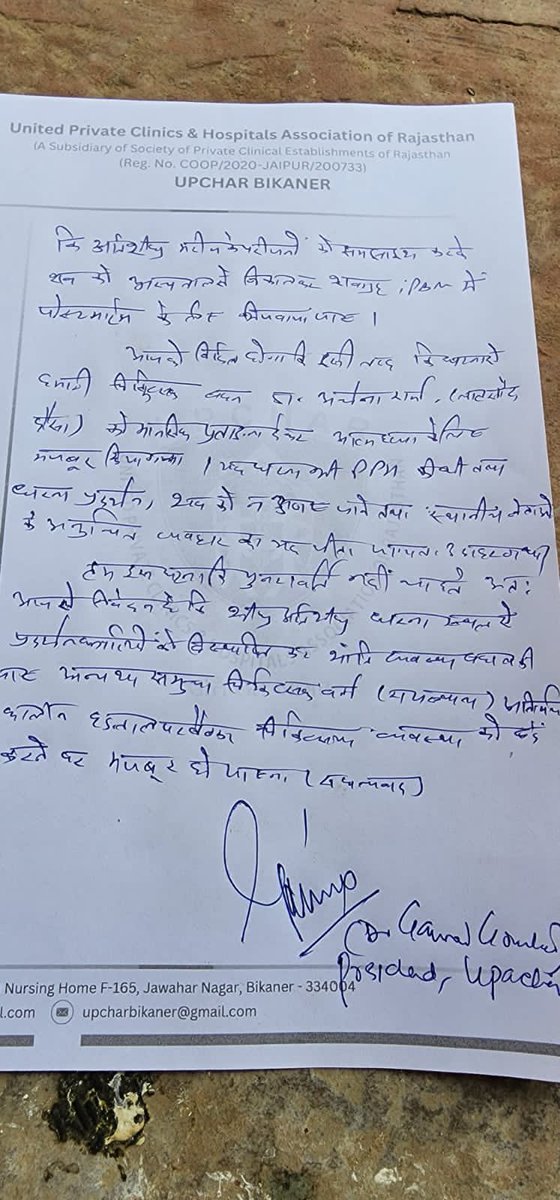 United Private Clinics & Hospitals Association of Rajasthan
(A Subsidiary of Society of Private Clinical Establishments of Rajasthan)
(Reg. No. COOP/2020-JAIPUR/200733)
UPCHAR BIKANER
कि अतिशीघ्र मरीज के परीजनों को समझाइश करके
शव को अस्पताल से निकालकर शवगृह, PBM में
पोस्टमार्टम के लिए भिजवाया जाए ।
आपको विदित होगा कि इसी तरह
हमारी चिकित्सक बहन डा. अर्चना शर्मा, (लालसोट
दौसा) को मानसिक प्रताड़ना देकर आत्महत्या के लिए
मजबूर किया गया । यह घटना भी PPH की थी तथा
धरना प्रदर्शन, शव को न उठाए जाने तथा स्थानीय नेताओं
के अनुचित व्यवहार का यह
हम इस घटना कि पुनरावर्ति नहीं चाहते अतः
आपसे निवेदन है कि शीघ्र अतिशीघ्र धरना स्थल से
प्रदर्शनकारियों को विस्थापित कर शांति व्यवस्था
जाए अन्यथा समुचा चिकित्सक वर्ग
कालीन हड़ताल पर बैठकर चिकित्सा व्यवस्था को बंद
करने पर मजबूर हो जाएगा (धन्यवाद)
(Dr Gaurav
President, Upachar
Nursing Home F-165, Jawahar Nagar, Bikaner - 334004
l.com upcharbikaner@gmail.com